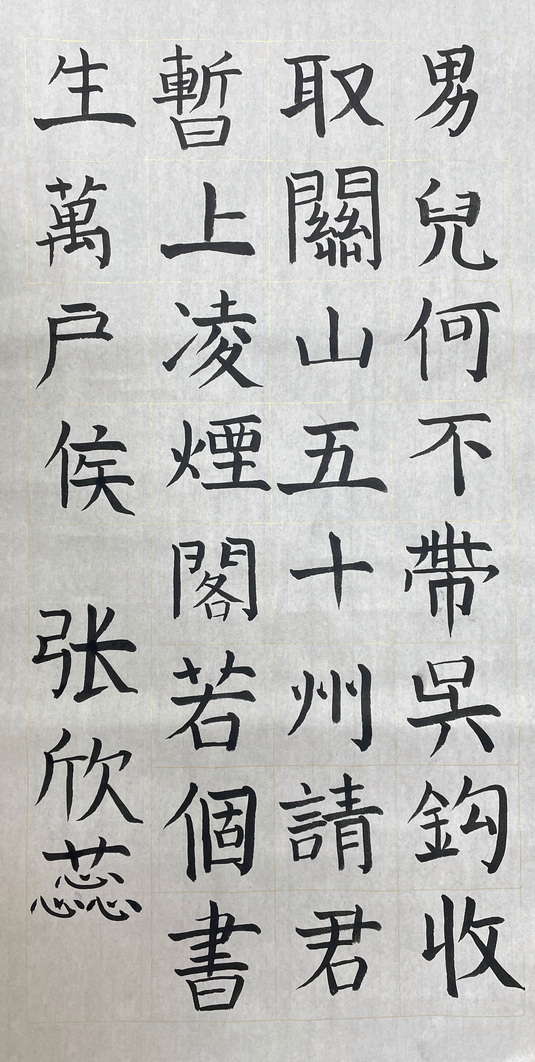 男兒何不帶吳鈎收
取關山五十州請君
暫上凌煙閣若個書
生萬戶侯 张欣蕊